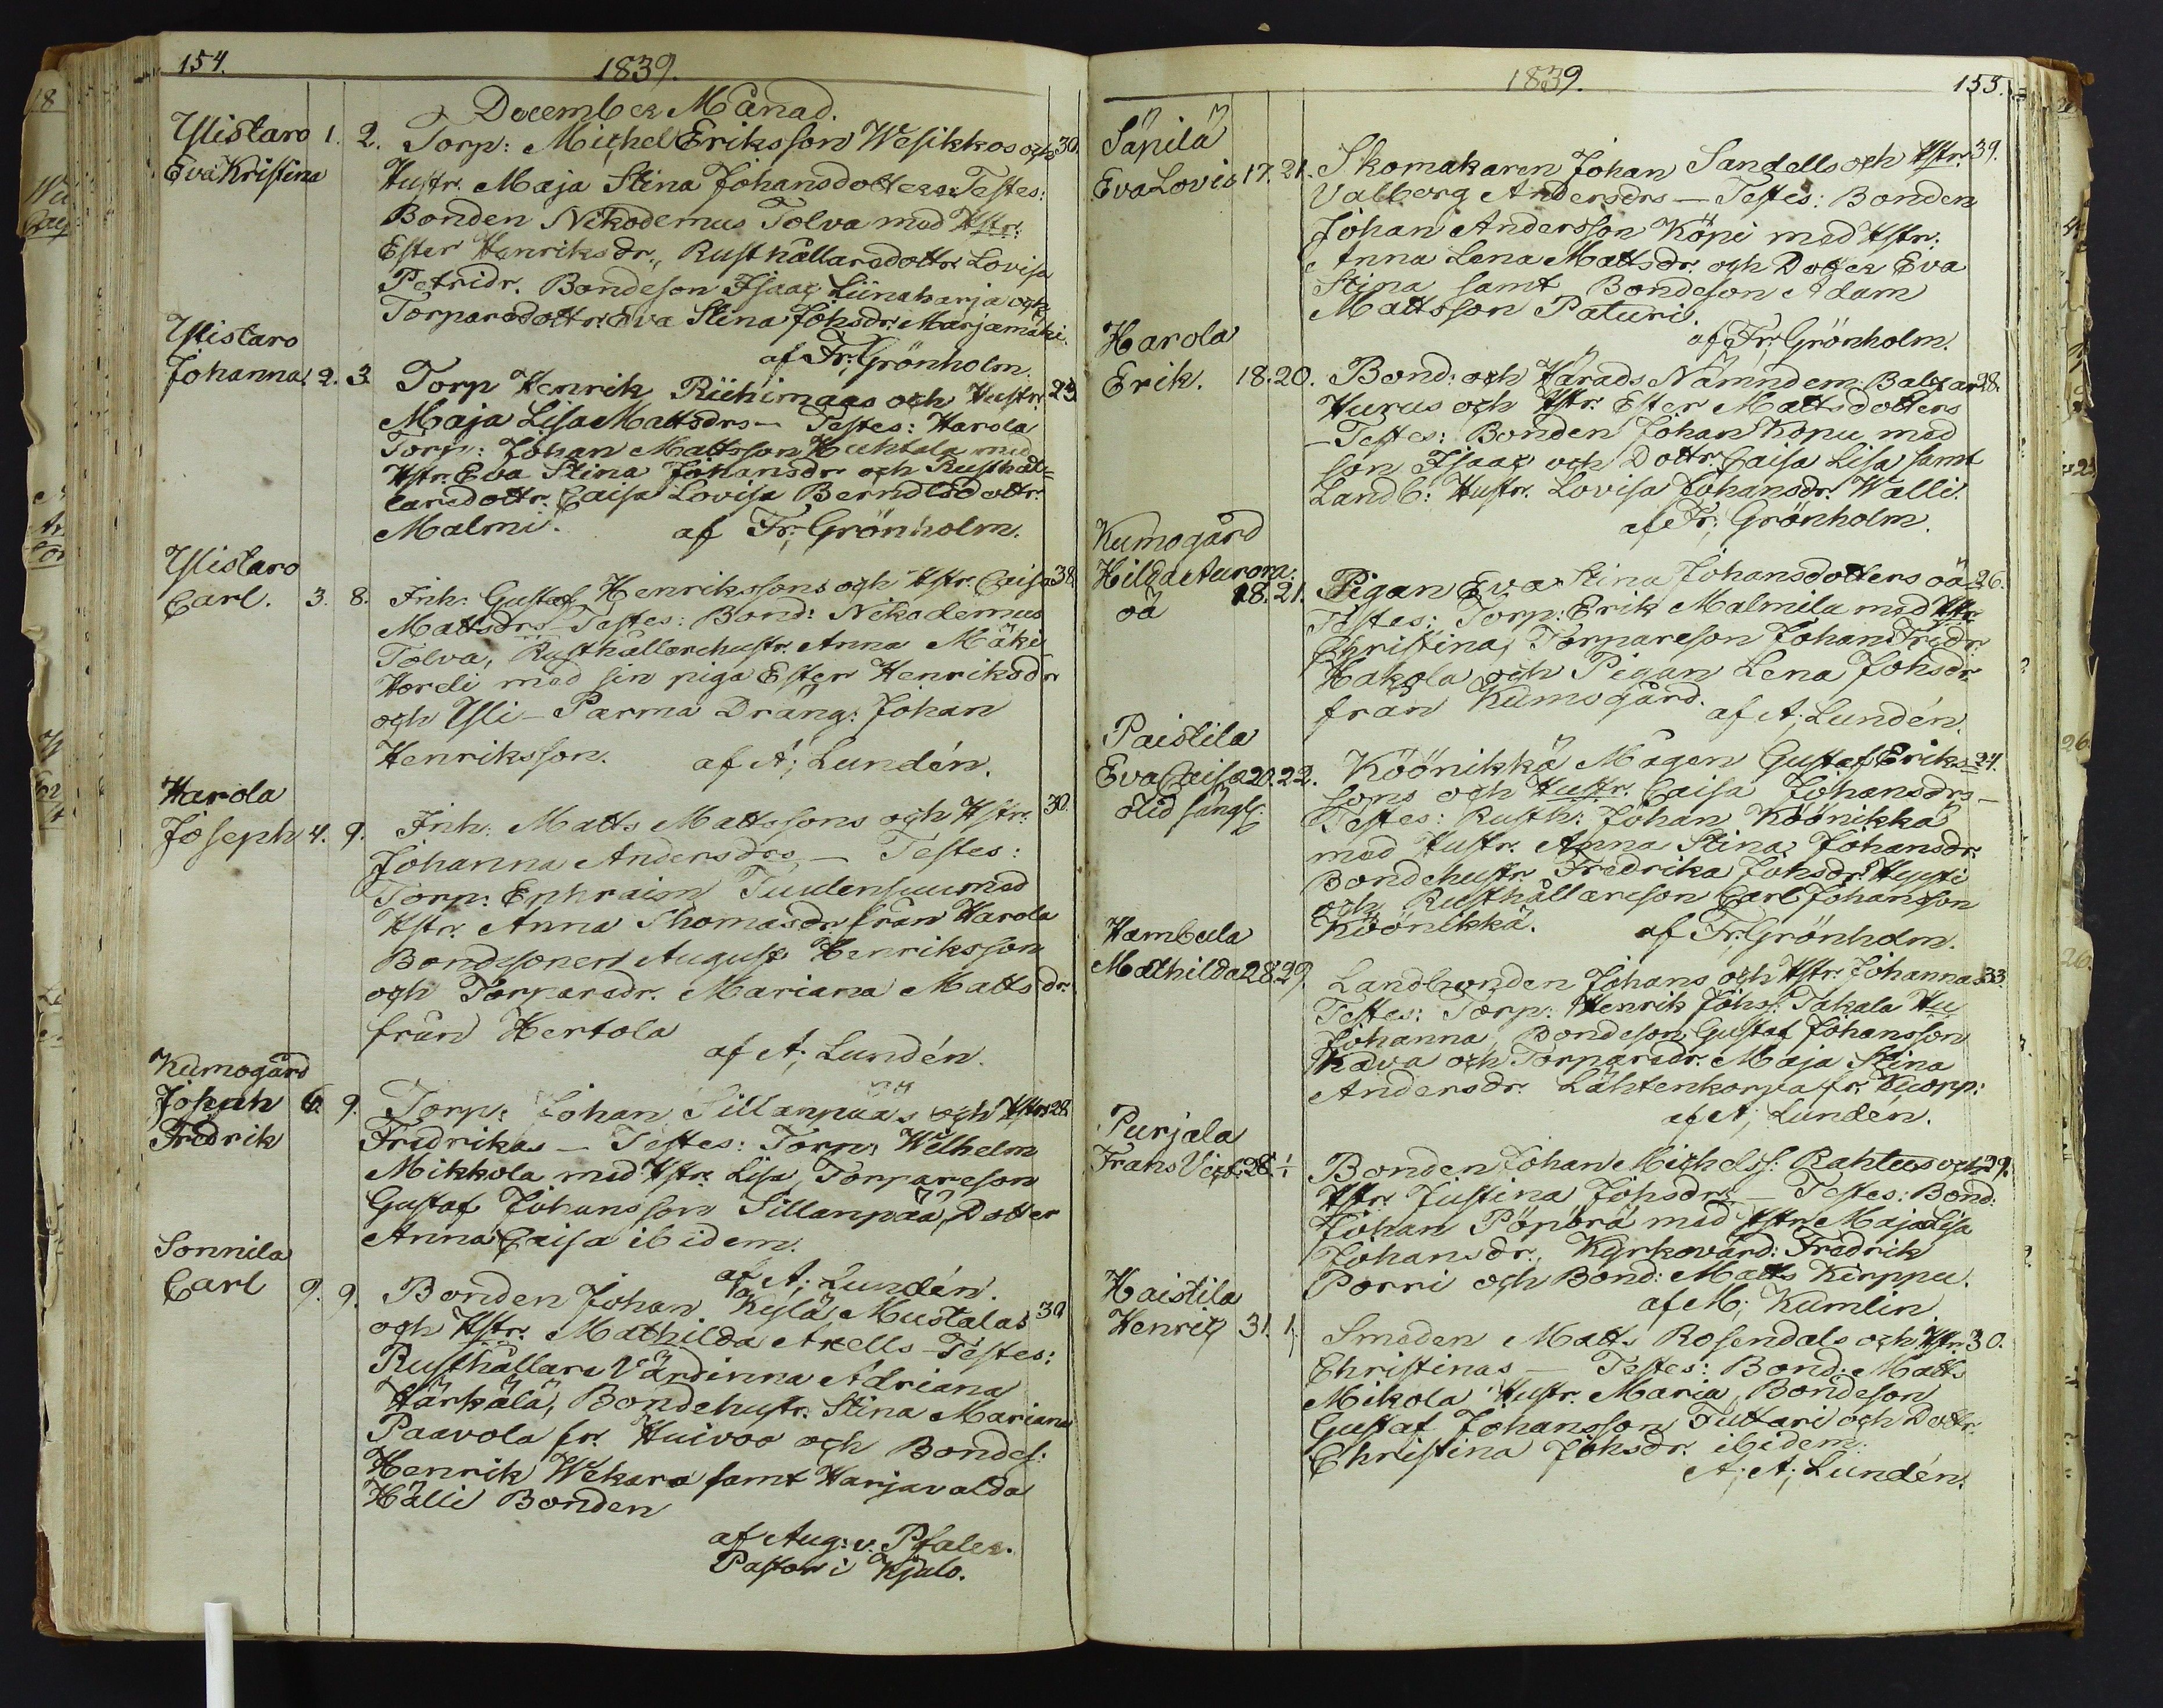 154.
1839.
December Månad.
Ylistaro 1. 2. Torp: Michel Eriksson Wesikkos och 30.
Eva Kristina Hustr. Maja Stina Johansdotters Testes:
Bonden Nikodemus Tolva med Hstr.
Ester Henriksdr, Rusthållaredottr. Lovisa
Petridr. Bondeson Isaac Liinaharja och
Torparedottr. Eva Stina Johsdr. Marjamäki.
af Fr; Grönholm.
Ylistaro
Johanna. 2. 3. Torp Henrik Riihimaas och Hustr. 23.
Maja Lisa Mattsdrs – Testes: Harola
Torp: Johan Mattsson Huhtala med
Hstr. Eva Stina Johansdr och Rusthål-
laredottr. Caisa Lovisa Berndtsdottr.
Malmi. af Fr; Grönholm.
Ylistaro
Carl. 3. 8. Inh: Gustaf Henrikssons och Hstr. Caisa 38.
Mattsdrs Testes: Bond: Nikodemus
Tolva, Rusthållarehustr. Anna Mäki
Hordi med sin piga Ester Henriksdr
och Yli-Parma Dräng: Johan
Henriksson. af A; Lundén.
Harola
Joseph 4. 9. Inh: Matts Mattssons och Hstr. 30.
Johanna Andersdrs – Testes:
Torp: Ephraim Tuulensuu med
Hstr. Anna Thomasdr. från Harola
Bondesonen August Henriksson
och Torparedr. Mariana Mattsdr.
från Hertola
af A; Lundén.
Kumogård
Joseph 6. 9. Torp: Johan Sillanpääs och Hstr 28.
Fredrik Fredrikas – Testes: Torp; Wilhelm
Mikkola med Hstr. Lisa, Torpareson
Gustaf Johansson Sillanpää, Dotter
Anna Caisa ibidem.
af A; Lundén.
Sonnila
Carl 9. 9. Bonden Johan Kylä Mustalas 30
och Hstr. Mathilda Axells – Testes:
Rusthållare Värdinna Adriana
Härkälä, Bondehustr. Stina Mariana
Paavola fr. Huivoo och Bondes:
Henrik Wekara samt Harjavalda
Hälli Bonden
af Aug: v. Pfaler.
Pastor i Kjulo.
1839.
155.
Säpilä
Eva Lovis 17. 21. Skomakaren Johan Sandells och Hstr. 39.
Valborg Andersdrs – Testes: Bonden
Johan Andersson Köpi med Hstr.
Anna Lena Mattsdr. och Dotter Eva
Stina samt Bondeson Adam
Mattsson Paturi.
af Fr; Grönholm.
Harola
Erik. 18. 20. Bond: och Härads Nämndem: Baltzar 28.
Hurus och Hstr. Ester Mattsdotters
– Testes: Bonden Johan Kopu med
son Isaac och Dottr. Caisa Lisa samt
Landb: Hustr. Lovisa Johansdr. Walli.
af Fr; Grönholm.
Kumogård
Hilda Auror. 18. 21. Pigan Eva Stina Johansdotters oä 26.
oä Testes: Torp: Erik Malmila med Hstr
Christina, Torpareson Johan Fredr.
Hakola och Pigan Lena Johsdr.
från Kumogård. af A; Lundén.
Paistila
Eva Caisa 20. 22. Köönikkä Mågen Gustaf Eriks- 24.
sons och Hustr. Caisa Johansdrs –
Testes: Rusth: Johan Köönikkä
med Hustr. Anna Stina Johansdr.
Bondehustr Fredrika Johsdr. Hyypi
och Rusthållareson Carl Johansson
Köönikkä. af Fr; Grönholm.
Hambula
Mathilda 28. 29. Landbonden Johans och Hstr. Johannas 33.
Testes: Torp: Henrik Johss: Takala Hu
Johanna, Bondeson Gustaf Johansson
Kadva och Torparedr. Maja Stina
Andersdr. Lähtenkorpa fr.
af A; Lundén.
Purjala
Frans Vict: 28. Bonden Johan Michelss: Rahtus och 29.
Hstr. Justina Johsdr. – Testes: Bond:
Johan Pöpörä med Hstr. Maja Lisa
Johansdr., Kyrkovärd: Fredrik
Porri och Bond: Matts Kirppu.
af M; Kumlin.
Haistila
Henric 31. 1. Smeden Matts Rosendals och Hstr 30.
Christinas – Testes: Bond: Matts
Mikola Hustr. Maria, Bondeson
Gustaf Johansson Tuttari och Dottr.
Christina Johsdr. ibidem.
A; A; Lundén.